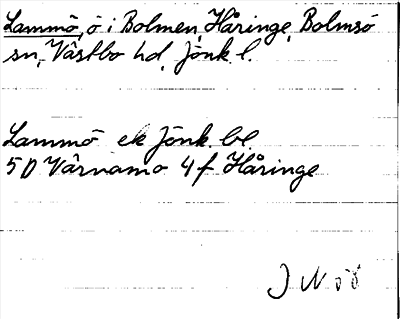 Lammö, ö i Bolmen, Håringe, Bolmsö
sn, Västbo hd, Jönk. l.
Lammö ek Jönk. bl
5 D Värnamo 4 f Håringe
J N 58